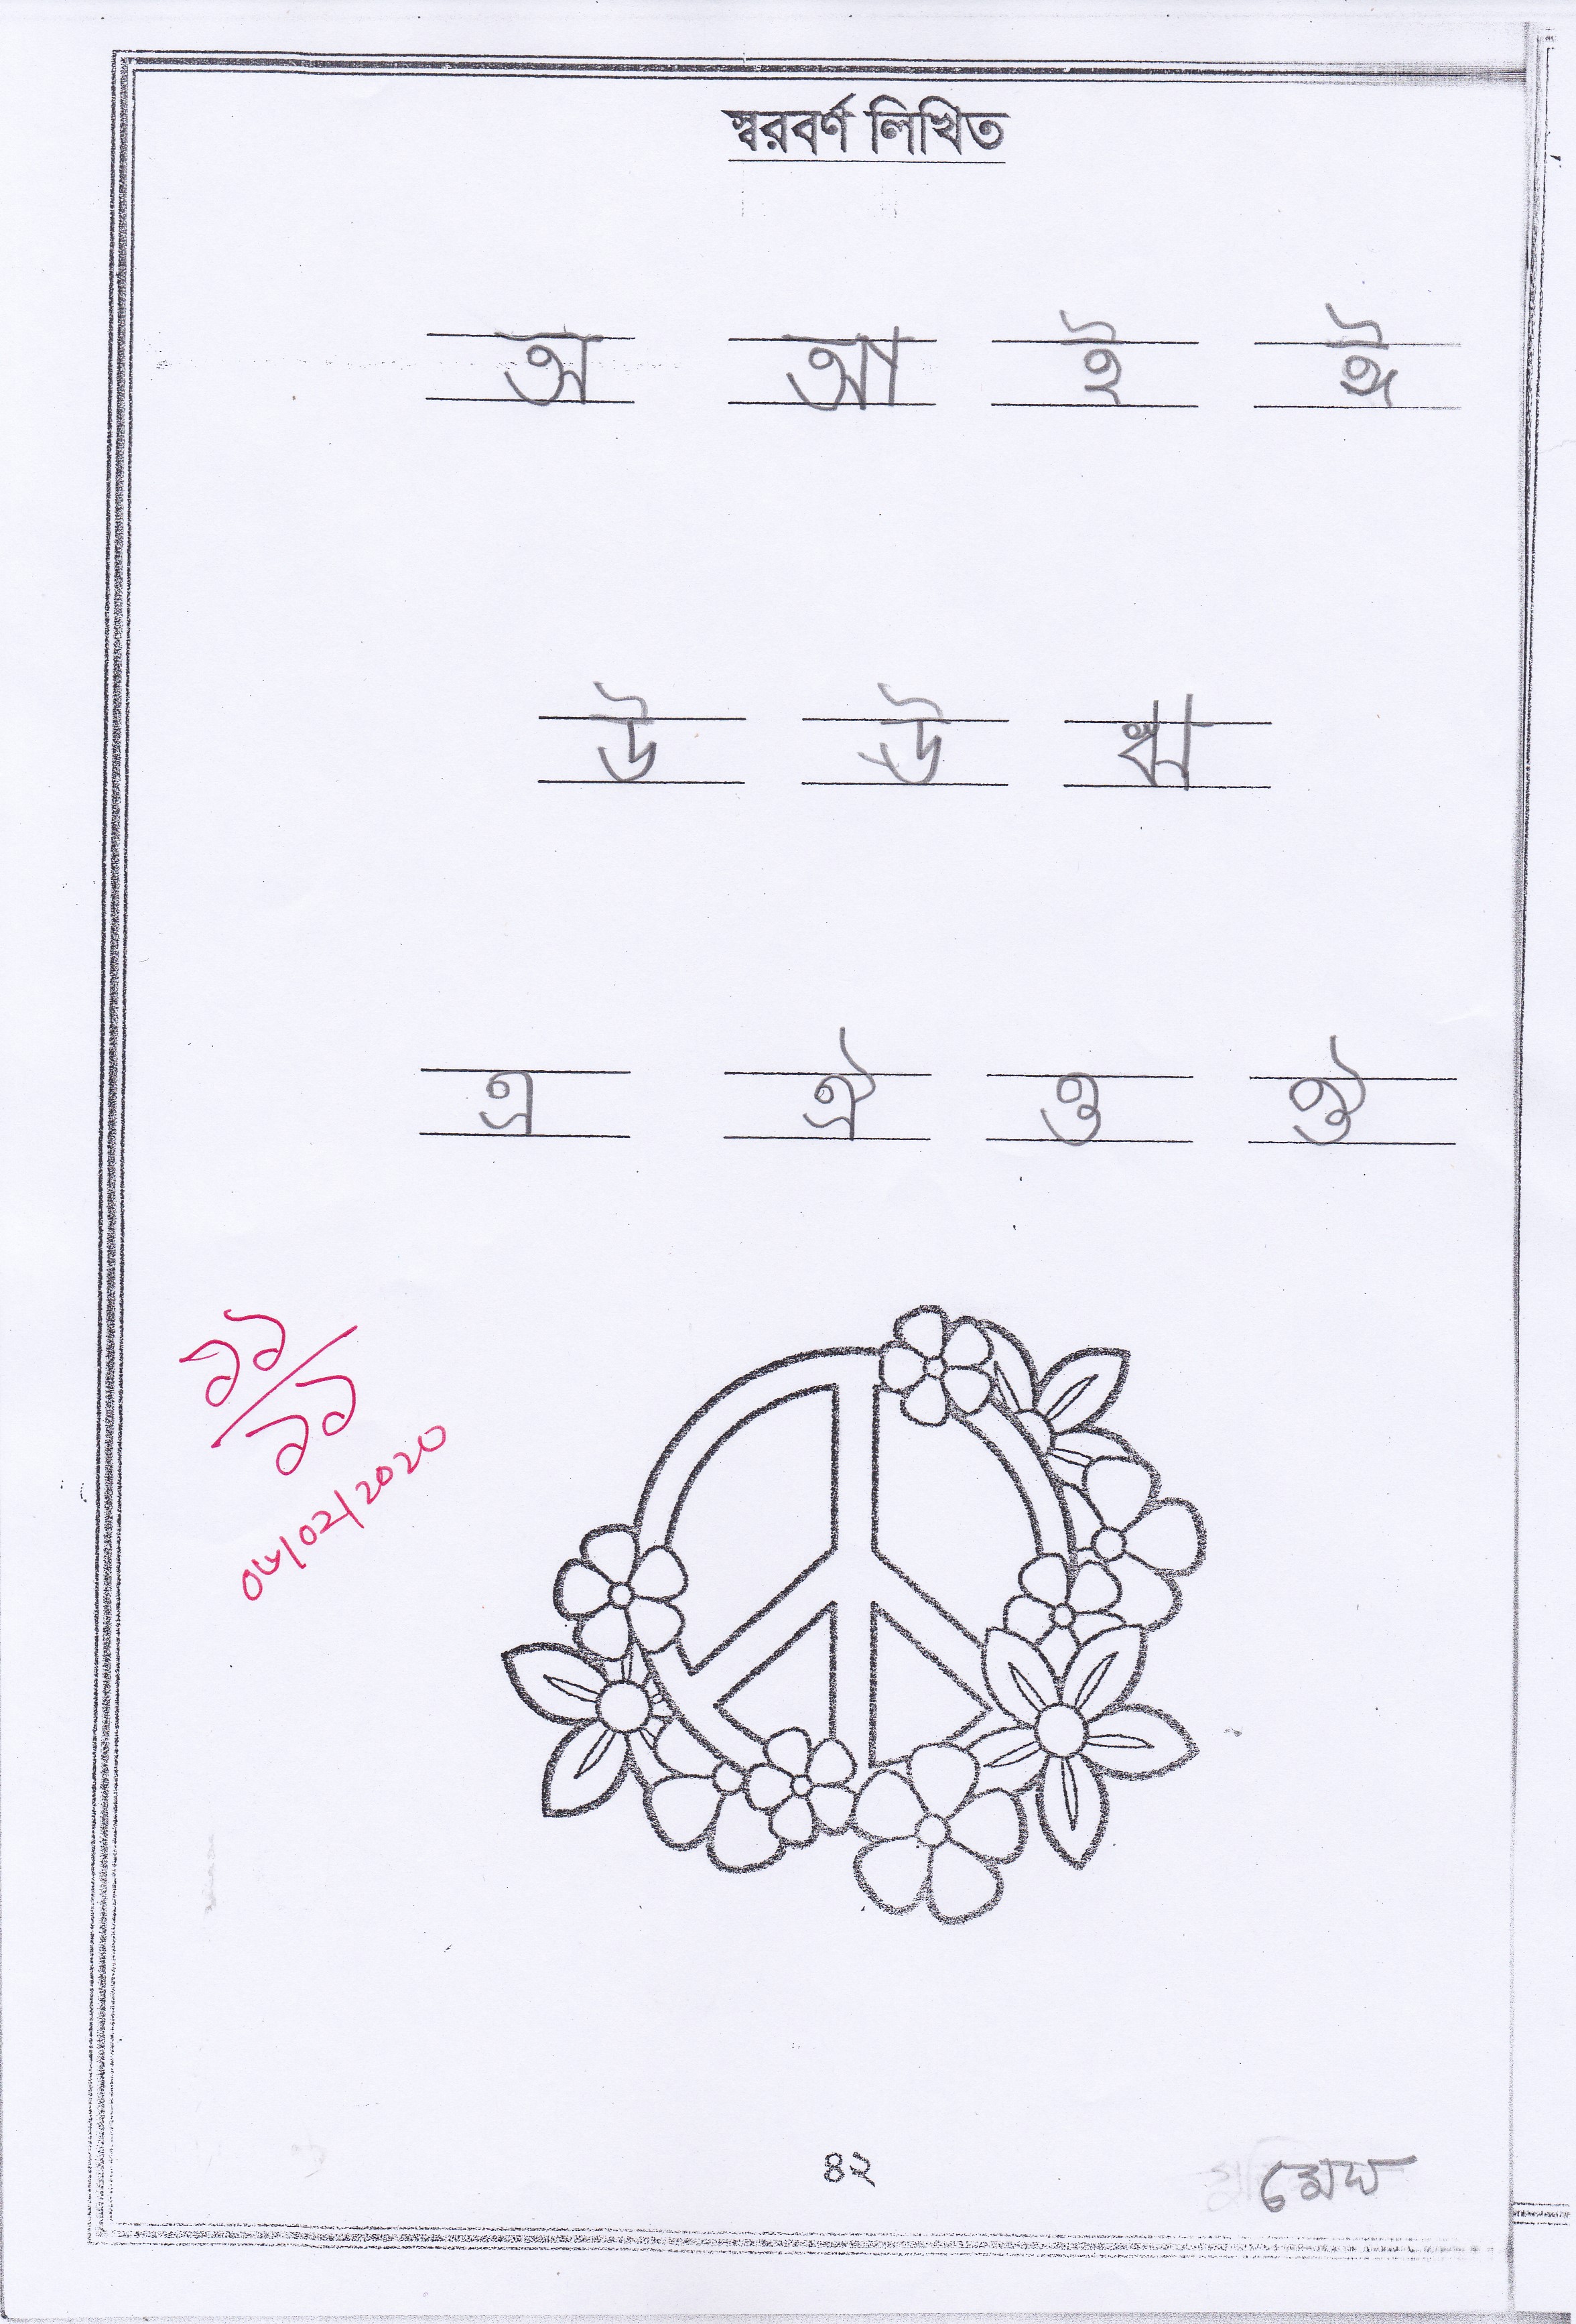 স্বরবর্ণ লিখিত
অ আ ই ঈ
উ ঊ ঋ
এ ঐ ও ঔ
১১/১১
০৬/০২/২০২০
৪২
মেঘ